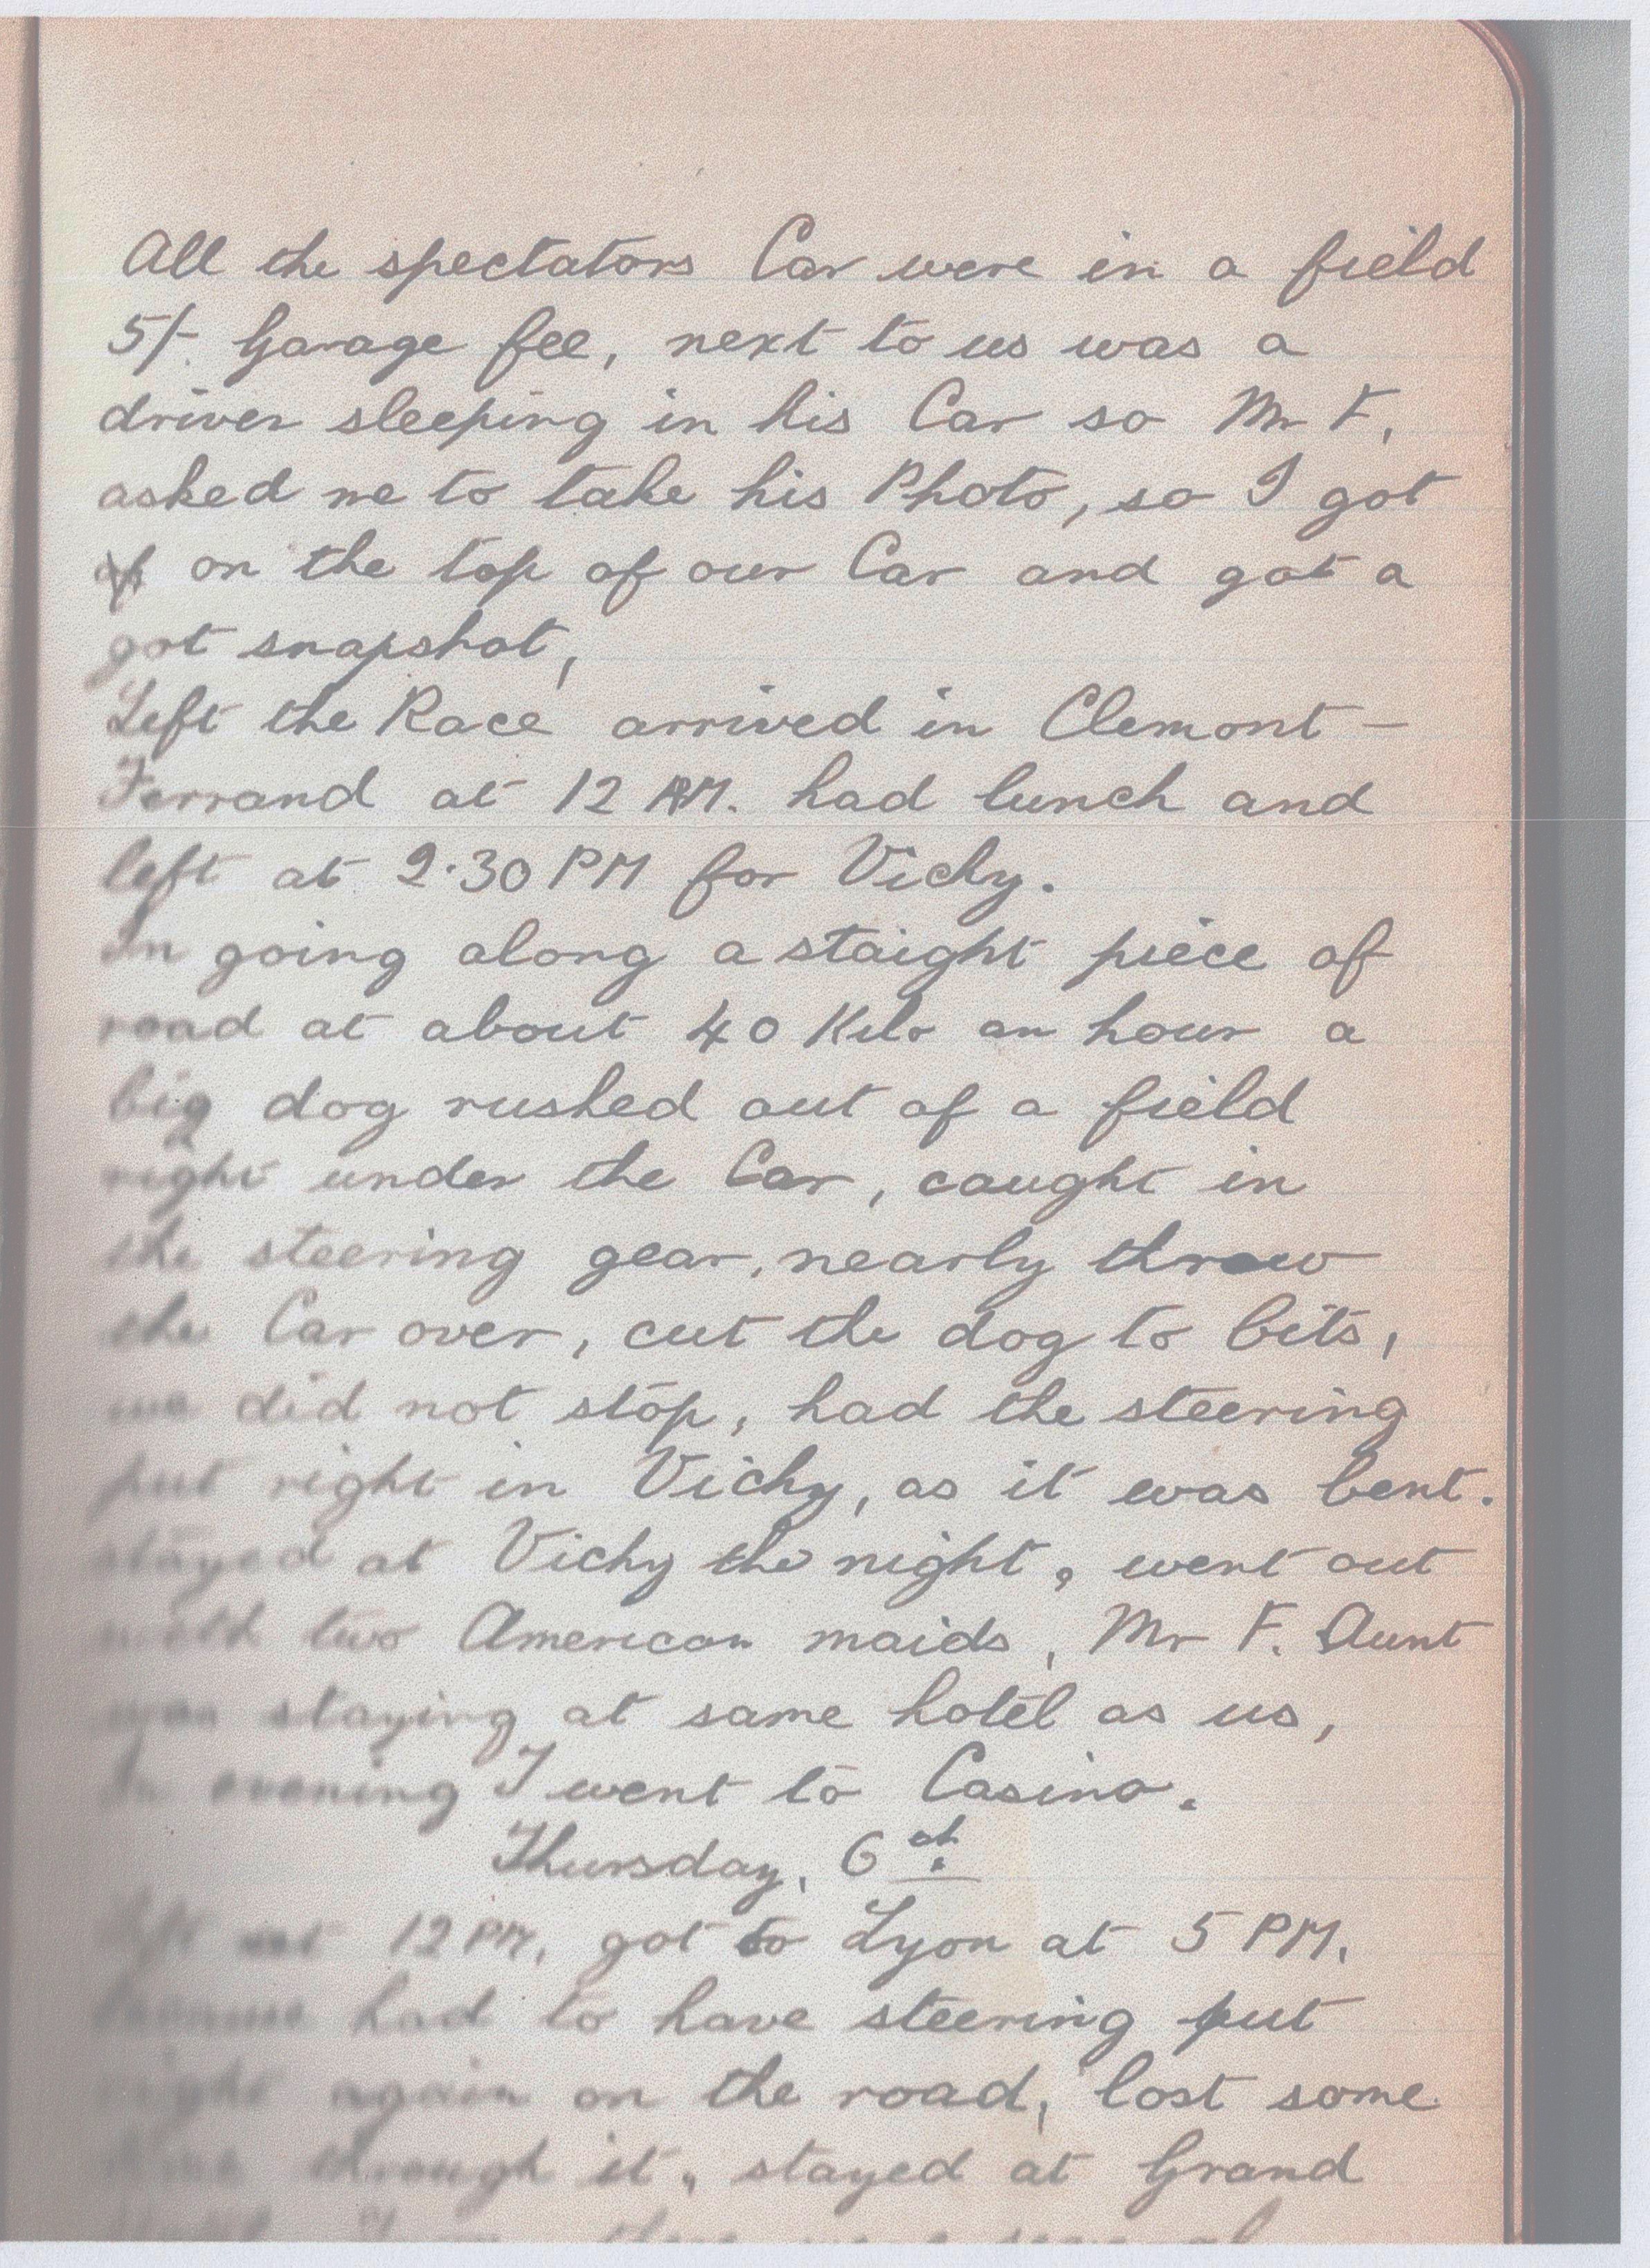 All the spectators Car were in a field
5/- Garage fee, next to us was a
driver sleeping in his Car so Mr F.
asked me to take his Photo, so I got
on the top of our Car and got a
got snapshot,
Left the Race arrived in Clemont-
Ferrand at 12 AM. had lunch and
left at 2.30 PM for Vichy.
In going along a staight piece of
road at about 40 Kilo an hour a
big dog rushed out of a field
right under the Car, caught in
the steering gear, nearly throw
the Car over, cut the dog to bits,
we did not stop, had the steering
put right in Vichy, as it was bent.
stayed at Vichy the night, went out
with two American maids, Mr F. Aunt
was staying at same hotel as us,
In evening I went to Casino.
Thursday, 6th
Left at 12 PM, got to Lyon at 5 PM.
had to have steering put
right again on the road, lost some
time through it, stayed at Grand